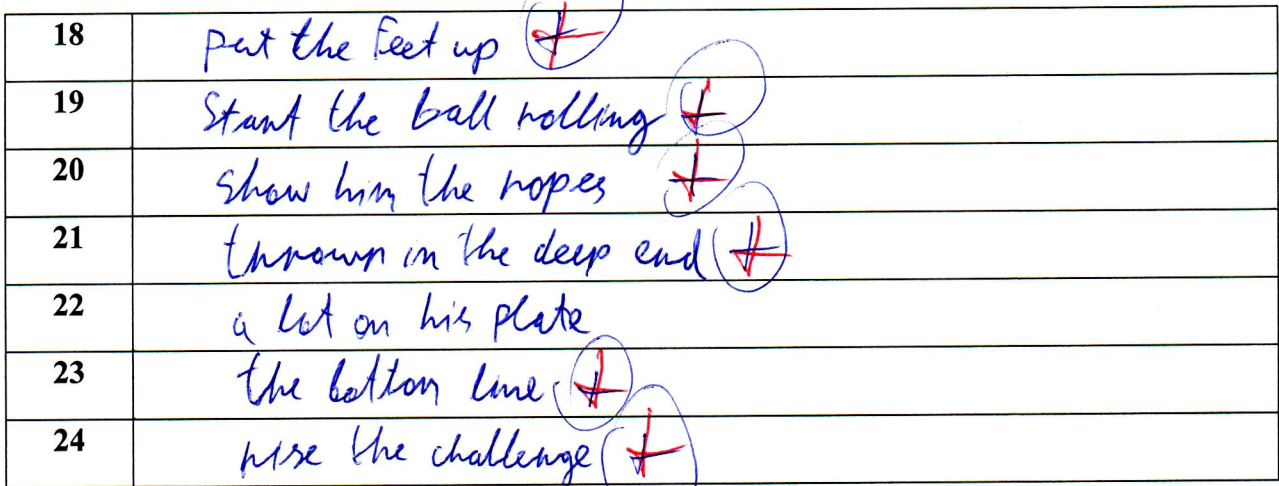 18 put the Feet up +
19 Start the ball rolling +
20 show him the ropes +
21 thrown in the deep end +
22 a lot on his plate
23 the bottom line. +
24 rise the challenge +